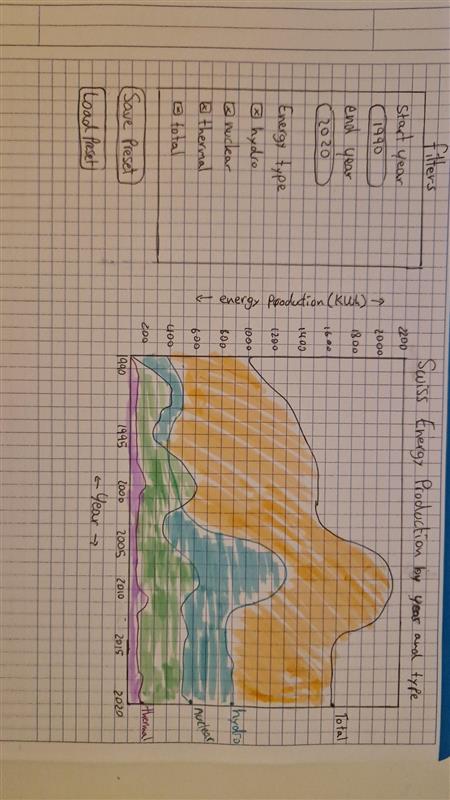 filters
Start year
1990
end year
2020
Energy type
hydro
nuclear
thermal
total
Save Preset
Load Preset
Swiss Energy Production by year and type
← energy Production (KWh) →
2200
2000
1800
1600
1400
1200
1000
800
600
400
200
1990
1995
2000
2005
2010
2015
2020
← Year →
Total
hydro
nuclear
thermal